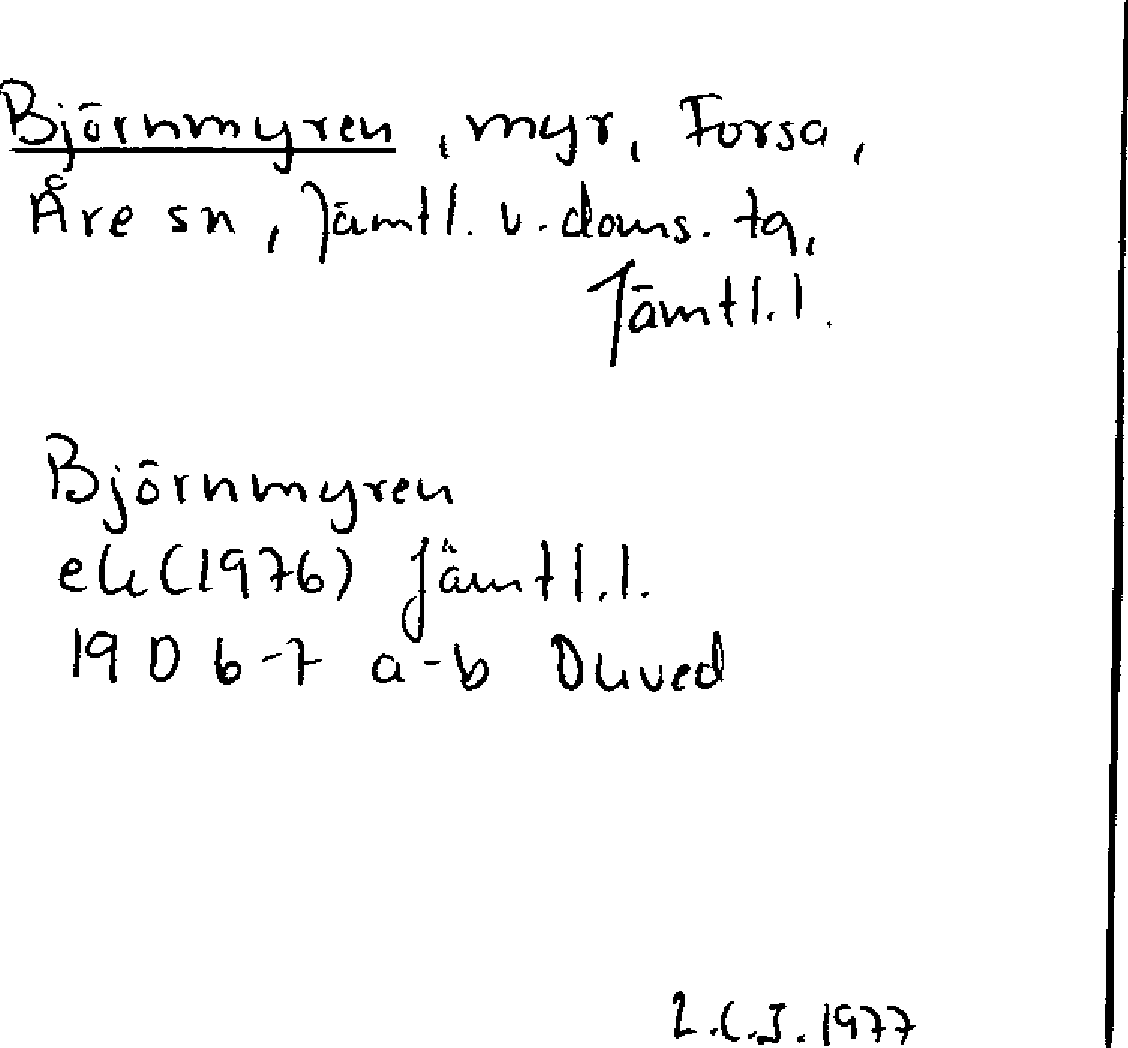 Björnmyren, myr, Forsa,
Åre sn, Jämtl. v. doms. tg,
Jämtl. l.
Björnmyren
ek (1976) Jämtl. l.
19 D 6-7 a-b Duved
L.C.J. 1977